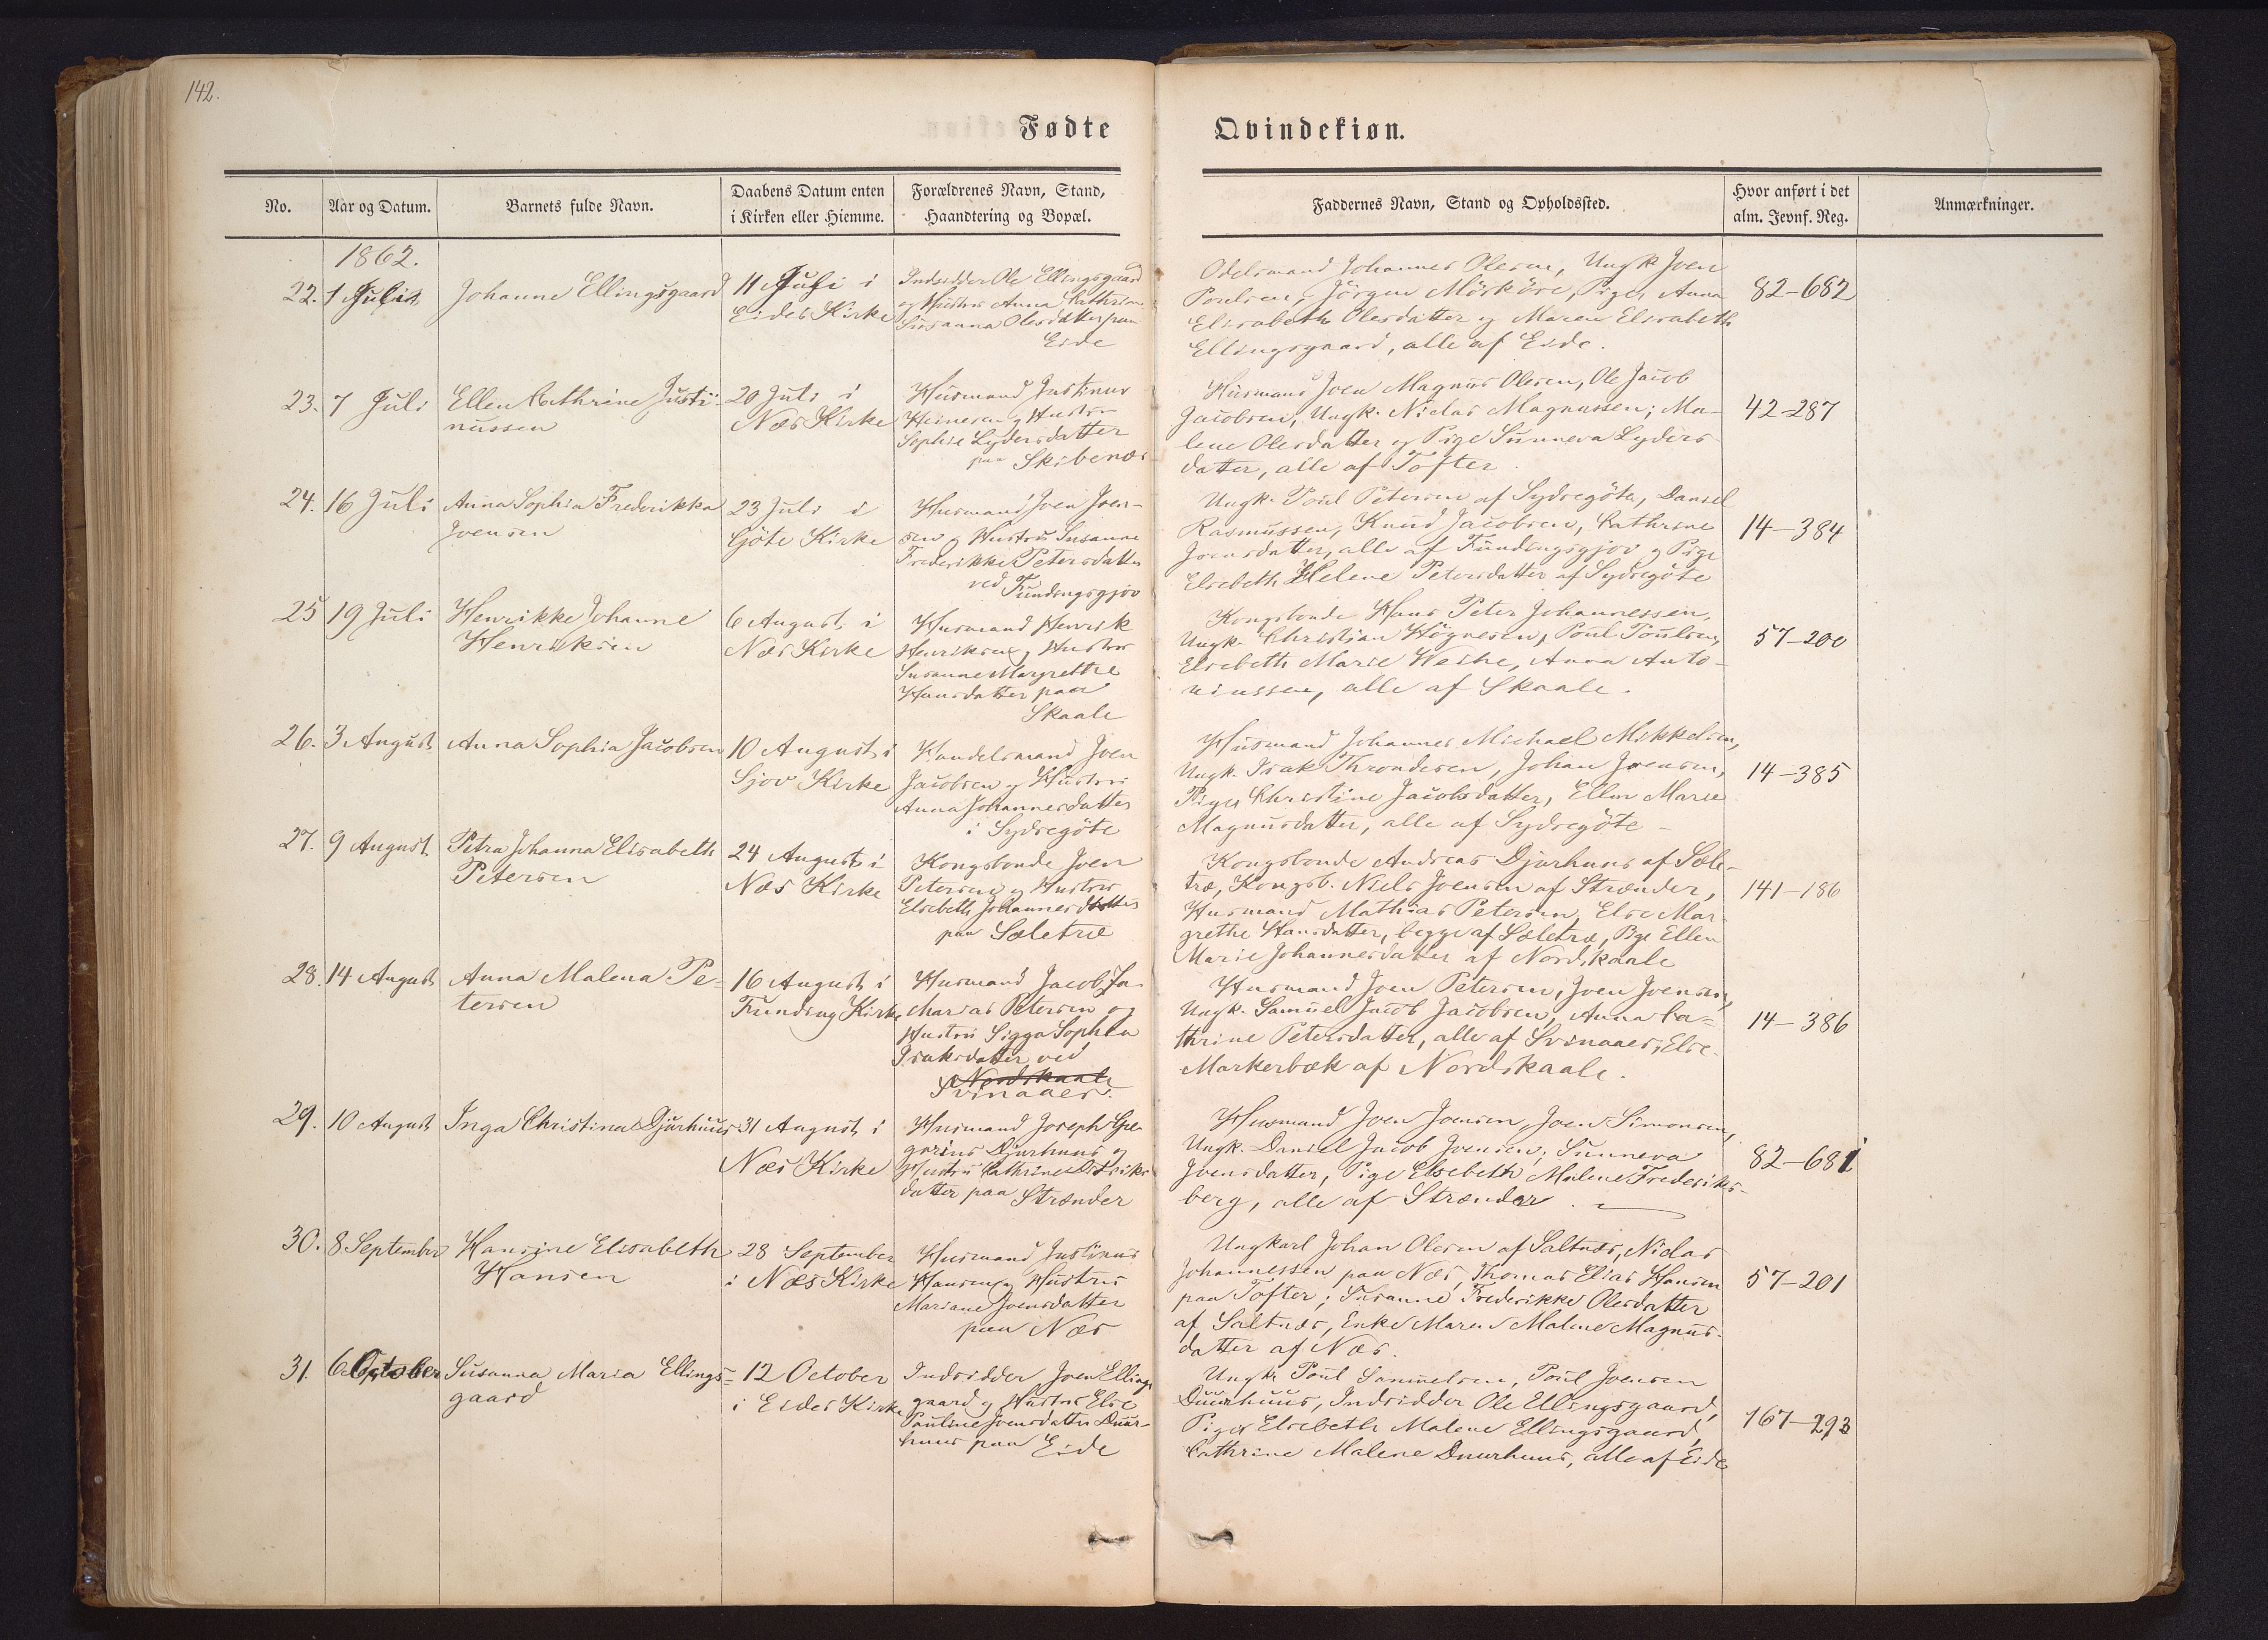 142.
Fødte
Qvindekiøn.
No.
Aar og Datum.
Barnets fulde Navn.
Daabens Datum enten
i Kirken eller Hiemme.
Forældrenes Navn, Stand,
Haandtering og Bopæl.
Faddernes Navn, Stand og Opholdssted.
Hvor anført i det
alm. Jevnf. Reg.
Anmærkninger.
1862.
22. 1 Juli
Johanne Ellingsgaard
11 Juli i
Eides Kirke
Indsidder Ole Ellingsgaard
og Hustru Anna Cathrine
Susanna Olesdatter paa
Eide
Odelsmand Johannes Olesen, Ungk. Joen
Poulsen, Jörgen Mörköre, Piger Anna
Elisabeth Olesdatter og Maren Elisabeth
Ellingsgaard, alle af Eide.
82-682
23. 7 Juli
Ellen Cathrine Justi-
nussen
20 Juli i
Næs Kirke
Husmand Justinus
Heinesen og Hustru
Sophie Lydersdatter
paa Skibenæs
Husmand Joen Magnus Olesen, Ole Jacob
Jacobsen, Ungk. Niclas Magnussen; Ma-
lene Olesdatter og Pige Sunneva Lyders-
datter, alle af Tofter.
42-287
24. 16 Juli
Anna Sophia Frederikka
Joensen
23 Juli i
Göte Kirke
Husmand Joen Joen-
sen og Hustru Susanne
Frederikke Petersdatter
ved Fundingsgjov
Ungk. Poul Petersen af Sydregöte, Daniel
Rasmussen, Knud Jacobsen, Cathrine
Joensdatter, alle af Fundingsgjov og Pige
Elsebeth Helene Petersdatter af Sydregöte
14-384
25 19 Juli
Henrikke Johanne
Henriksen
6 August i
Næs Kirke
Husmand Henrik
Henriksen og Hustru
Susanne Margrethe
Hansdatter paa
Skaale
Kongsbonde Hans Peter Johannessen,
Ungk. Christian Högnesen, Poul Poulsen,
Elsebeth Marie Weihe, Anna Anto-
niussen, alle af Skaale.
57-200
26. 3 August
Anna Sophia Jacobsen
10 August i
Gjov Kirke
Handelsmand Joen
Jacobsen og Hustru
Anna Johannesdatter
i Sydregöte
Husmand Johannes Michael Mikkelsen,
Ungk. Isak Throndesen, Johan Joensen,
Piger Christine Jacobsdatter, Ellen Marie
Magnusdatter, alle af Sydregöte -
14-385
27. 9 August
Petra Johanna Elisabeth
Petersen
24 August i
Næs Kirke
Kongsbonde Joen
Petersen og Hustru
Elsebeth Johannesdatter
paa Sæletræ
Kongsbonde Andreas Djurhuus af Sæle-
træ, Kongsb. Niels Joensen af Strænder,
Husmand Mathias Petersen, Else Mar-
grethe Hansdatter, begge af Sæletræ, Pige Ellen
Marie Johannesdatter af Nordskaale
141-186
28. 14 August
Anna Malena Pe-
tersen
16 August i
Funding Kirke
Husmand Jacob Za-
charias Petersen og
Hustru Sigga Sophia
Isaksdatter ved
Nordskaale
Svinaaer.
Husmand Joen Petersen, Joen Joensen,
Ungk. Samuel Jacob Jacobsen, Anna Ca-
thrine Petersdatter, alle af Svinaaer, Else
Markerbæk af Nordskaale.
14-386
29. 10 August
Inga Christina Djurhuus
31 August i
Næs Kirke
Husmand Joseph Gre-
gorius Djurhuus og
Hustru Cathrine Didriks-
datter paa Strænder
Husmand Joen Joensen, Joen Simonsen,
Ungk. Daniel Jacob Joensen; Sunneva
Joensdatter, Pige Elsebeth Malene Frederiks-
berg, alle af Strænder.
82-681
30. 8 September
Hansine Elisabeth
Hansen
28 September
i Næs Kirke
Husmand Justinus
Hansen og Hustru
Mariane Joensdatter
paa Næs
Ungkarl Johan Olesen af Saltnæs, Niclas
Johannessen paa Næs, Thomas Elias Hansen
paa Tofter; Susanne Frederikke Olesdatter
af Saltnæs, Enke Maren Malene Magnus-
datter af Næs.
57-201
31. 6 October
Susanna Maria Ellings-
gaard
12 October
i Eides Kirke
Indsidder Joen Ellings-
gaard og Hustru Else
Pauline Joensdatter Duur-
huus paa Eide
Ungk. Poul Samuelsen, Poul Joensen
Duurhuus, Indsidder Ole Ellingsgaard,
Piger Elsebeth Malene Ellingsgaard,
Cathrine Malene Duurhuus, alle af Eide
167-293